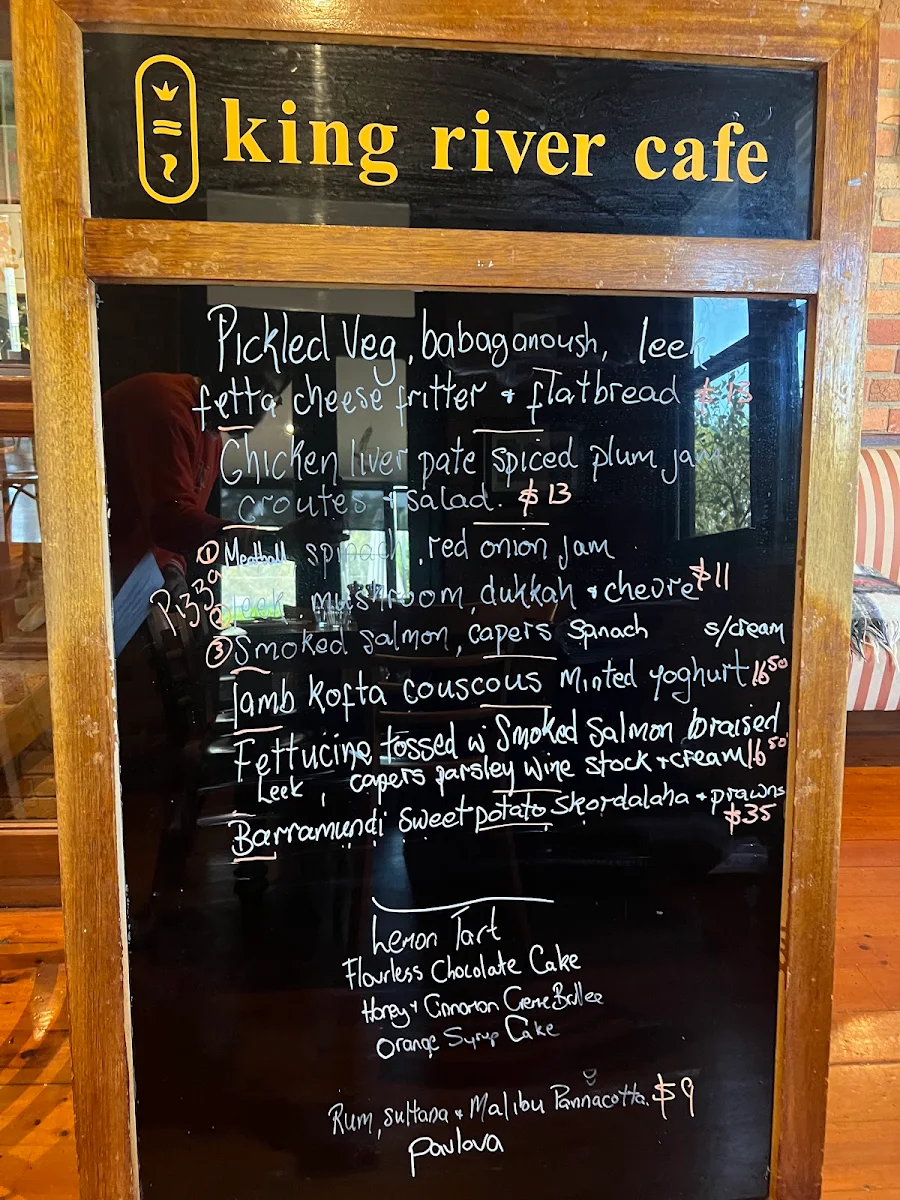 king river cafe
Pickled Veg, babaganoush, leek
fetta cheese fritter + flatbread $13
Chicken liver pate spiced plum jam
croutes + salad. $13
Pizza
① Meatball spinach, red onion jam
② leek, mushroom, dukkah + chevre $11
③ Smoked salmon, capers spinach s/cream
lamb kofta couscous Minted yoghurt 16.50
Fettucine tossed w Smoked Salmon braised
Leek, capers parsley wine stock + cream 16.50
Barramundi sweet potato Skordalaha + prawns
$35
Lemon Tart
Flourless Chocolate Cake
Honey + Cinnamon Creme Brulee
Orange Syrup Cake
Rum, sultana + Malibu Pannacotta. $9
Pavlova